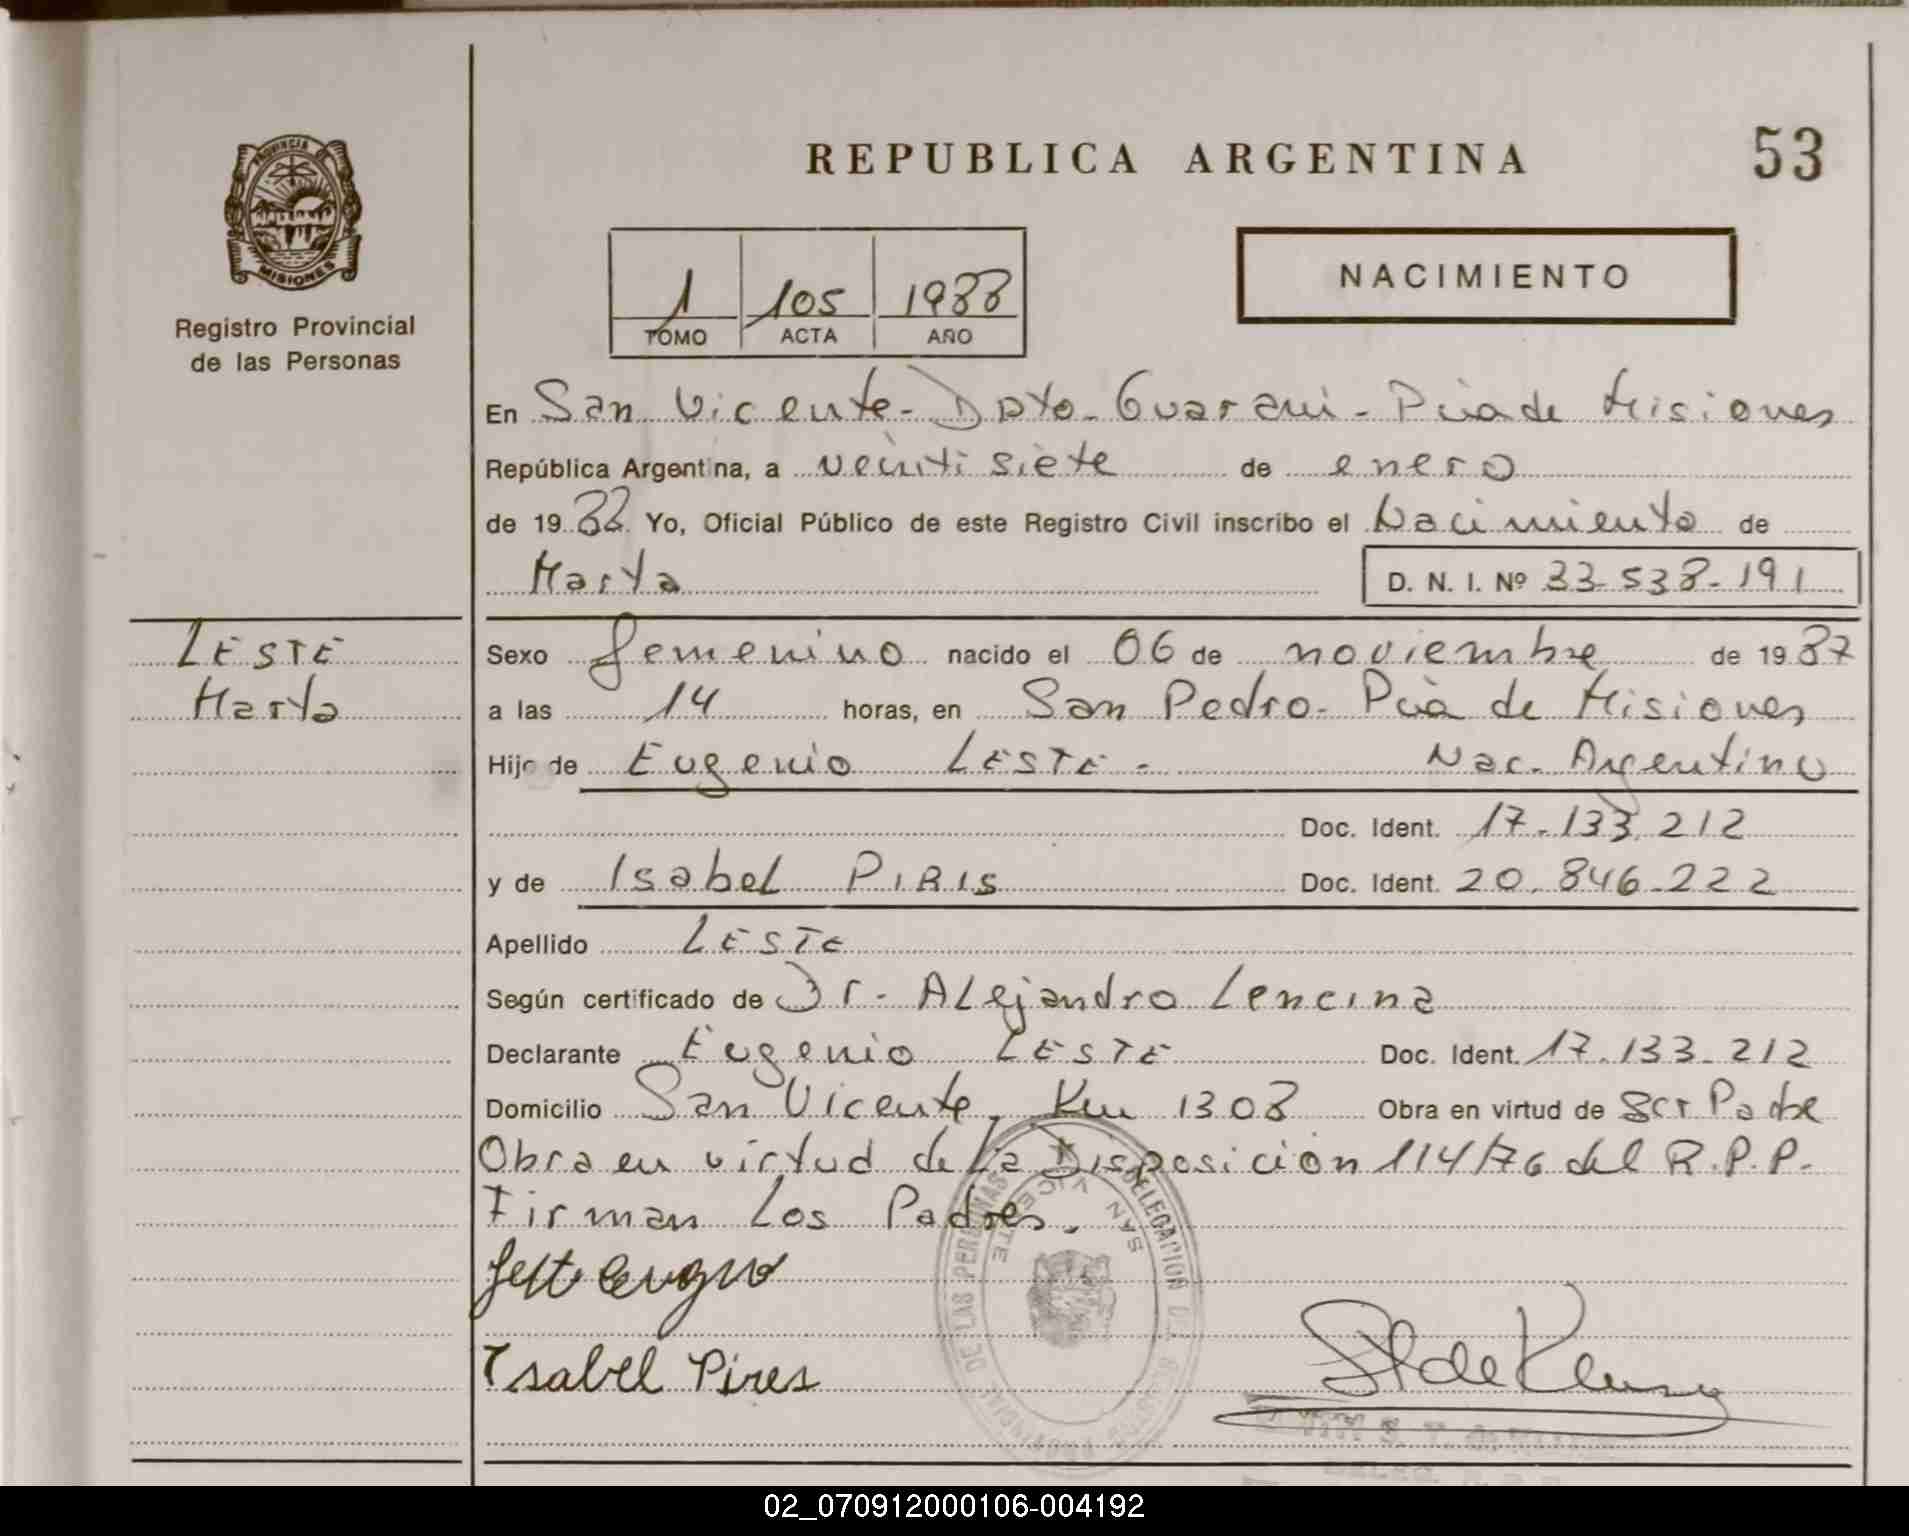 53
REPUBLICA ARGENTINA
PROVINCIA DE
MISIONES
Registro Provincial
de las Personas
1 105 1988
TOMO ACTA AÑO
NACIMIENTO
En San Vicente - Dpto. Guarani - Pcia de Misiones
República Argentina, a veinti siete de enero
de 1988 Yo, Oficial Público de este Registro Civil inscribo el Nacimiento de
Marta
D. N. I. Nº 33-538-191
LESTE
Marta
Sexo femenino nacido el 06 de noviembre de 1987
a las 14 horas, en San Pedro - Pcia de Misiones
Hijo de Eugenio LESTE - Nac. Argentino
Doc. Ident. 17-133.212
y de Isabel PIRIS Doc. Ident. 20.846.222
Apellido LESTE
Según certificado de Dr. Alejandro Lencina
Declarante Eugenio LESTE Doc. Ident. 17.133.212
Domicilio San Vicente, Km 1308 Obra en virtud de ser Padre
Obra en virtud de la Disposición 114/76 del R.P.P.
Firman Los Padres.
Isabel Pires
DELEGACION
SAN VICENTE
DE LAS PERSONAS
02_070912000106-004192